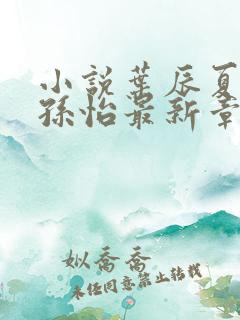 小說葉辰夏
孫怡最新章
姒喬喬
未經同意禁止轉載